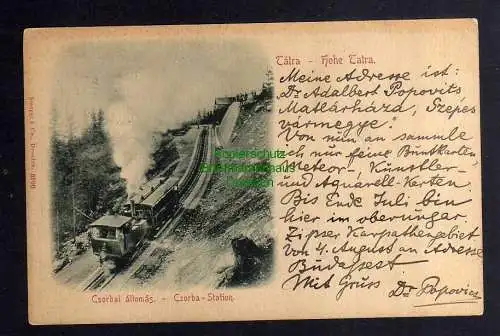 Tátra - Hohe Tatra.
Meine Adresse ist:
Dr Adalbert Popovits
Matlárháza, Szepes
vármegye."
Von nun an sammle
ich nur feine Buntkarten,
Meteor-, Künstler-
und Aquarell-Karten.
Bis Ende Juli bin
hier im oberungar.
Zipser Karpathengebiet
von 4. August an Adresse
Budapest
Mit Gruss Dr Popovics
Stengel & Co., Dresden. 8990
Csorbai állomás. - Czorba-Station.